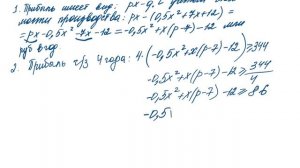 1. Прибыль имеет вид: px - q, с учётом
мости производства: px - (0,5x²+7x+12) =
= px - 0,5x² - 7x - 12 = -0,5x² + x(p-7) - 12 млн
руб в год
2. Прибыль ч/з 4 года: 4·(-0,5x² + x(p-7) - 12) ≥ 344
-0,5x² + x(p-7) - 12 ≥ 344/4
-0,5x² + x(p-7) - 12 ≥ 86
-0,5